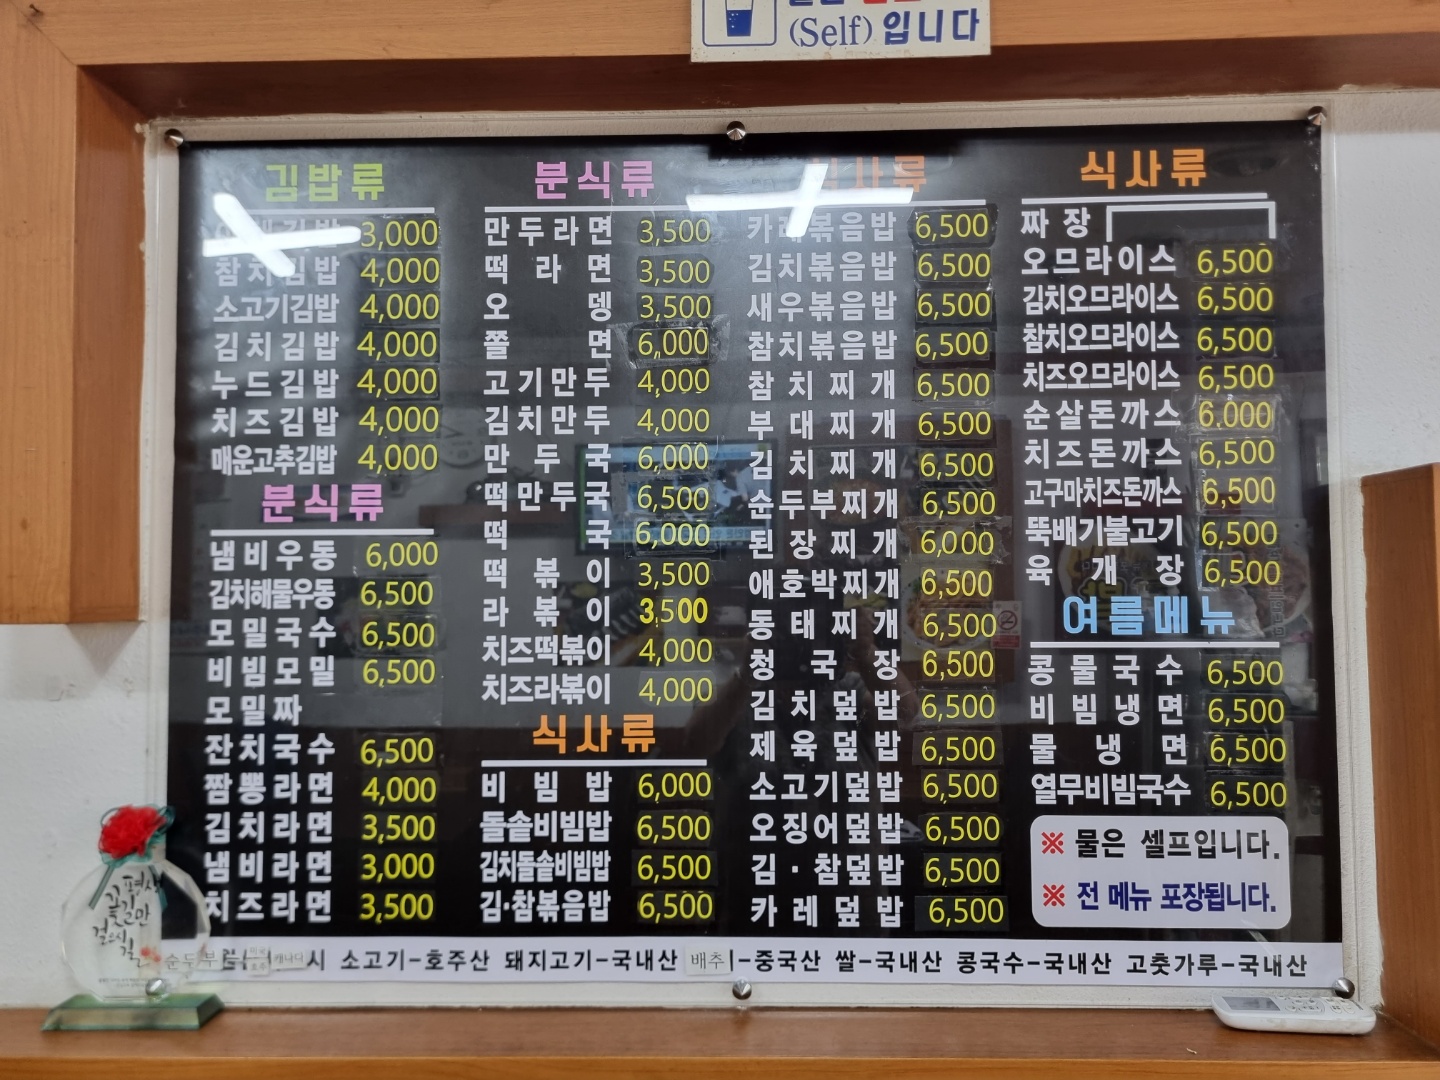 (Self) 입니다
김밥류
김밥 3,000
참치김밥 4,000
소고기김밥 4,000
김치김밥 4,000
누드김밥 4,000
치즈김밥 4,000
매운고추김밥 4,000
분식류
냄비우동 6,000
김치해물우동 6,500
모밀국수 6,500
비빔모밀 6,500
모밀짜
잔치국수 6,500
짬뽕라면 4,000
김치라면 3,500
냄비라면 3,000
치즈라면 3,500
분식류
만두라면 3,500
떡라면 3,500
오뎅 3,500
쫄면 6,000
고기만두 4,000
김치만두 4,000
만두국 6,000
떡만두국 6,500
떡국 6,000
떡볶이 3,500
라볶이 3,500
치즈떡볶이 4,000
치즈라볶이 4,000
식사류
비빔밥 6,000
돌솥비빔밥 6,500
김치돌솥비빔밥 6,500
김·참볶음밥 6,500
식사류
카레볶음밥 6,500
김치볶음밥 6,500
새우볶음밥 6,500
참치볶음밥 6,500
참치찌개 6,500
부대찌개 6,500
김치찌개 6,500
순두부찌개 6,500
된장찌개 6,000
애호박찌개 6,500
동태찌개 6,500
청국장 6,500
김치덮밥 6,500
제육덮밥 6,500
소고기덮밥 6,500
오징어덮밥 6,500
김·참덮밥 6,500
카레덮밥 6,500
식사류
짜장
오므라이스 6,500
김치오므라이스 6,500
참치오므라이스 6,500
치즈오므라이스 6,500
순살돈까스 6.000
치즈돈까스 6,500
고구마치즈돈까스 6,500
뚝배기불고기 6,500
육개장 6,500
여름메뉴
콩물국수 6,500
비빔냉면 6,500
물냉면 6,500
열무비빔국수 6,500
※ 물은 셀프입니다.
※ 전 메뉴 포장됩니다.
순두부 캐나다 시 소고기-호주산 돼지고기-국내산 배추 -중국산 쌀-국내산 콩국수-국내산 고춧가루-국내산